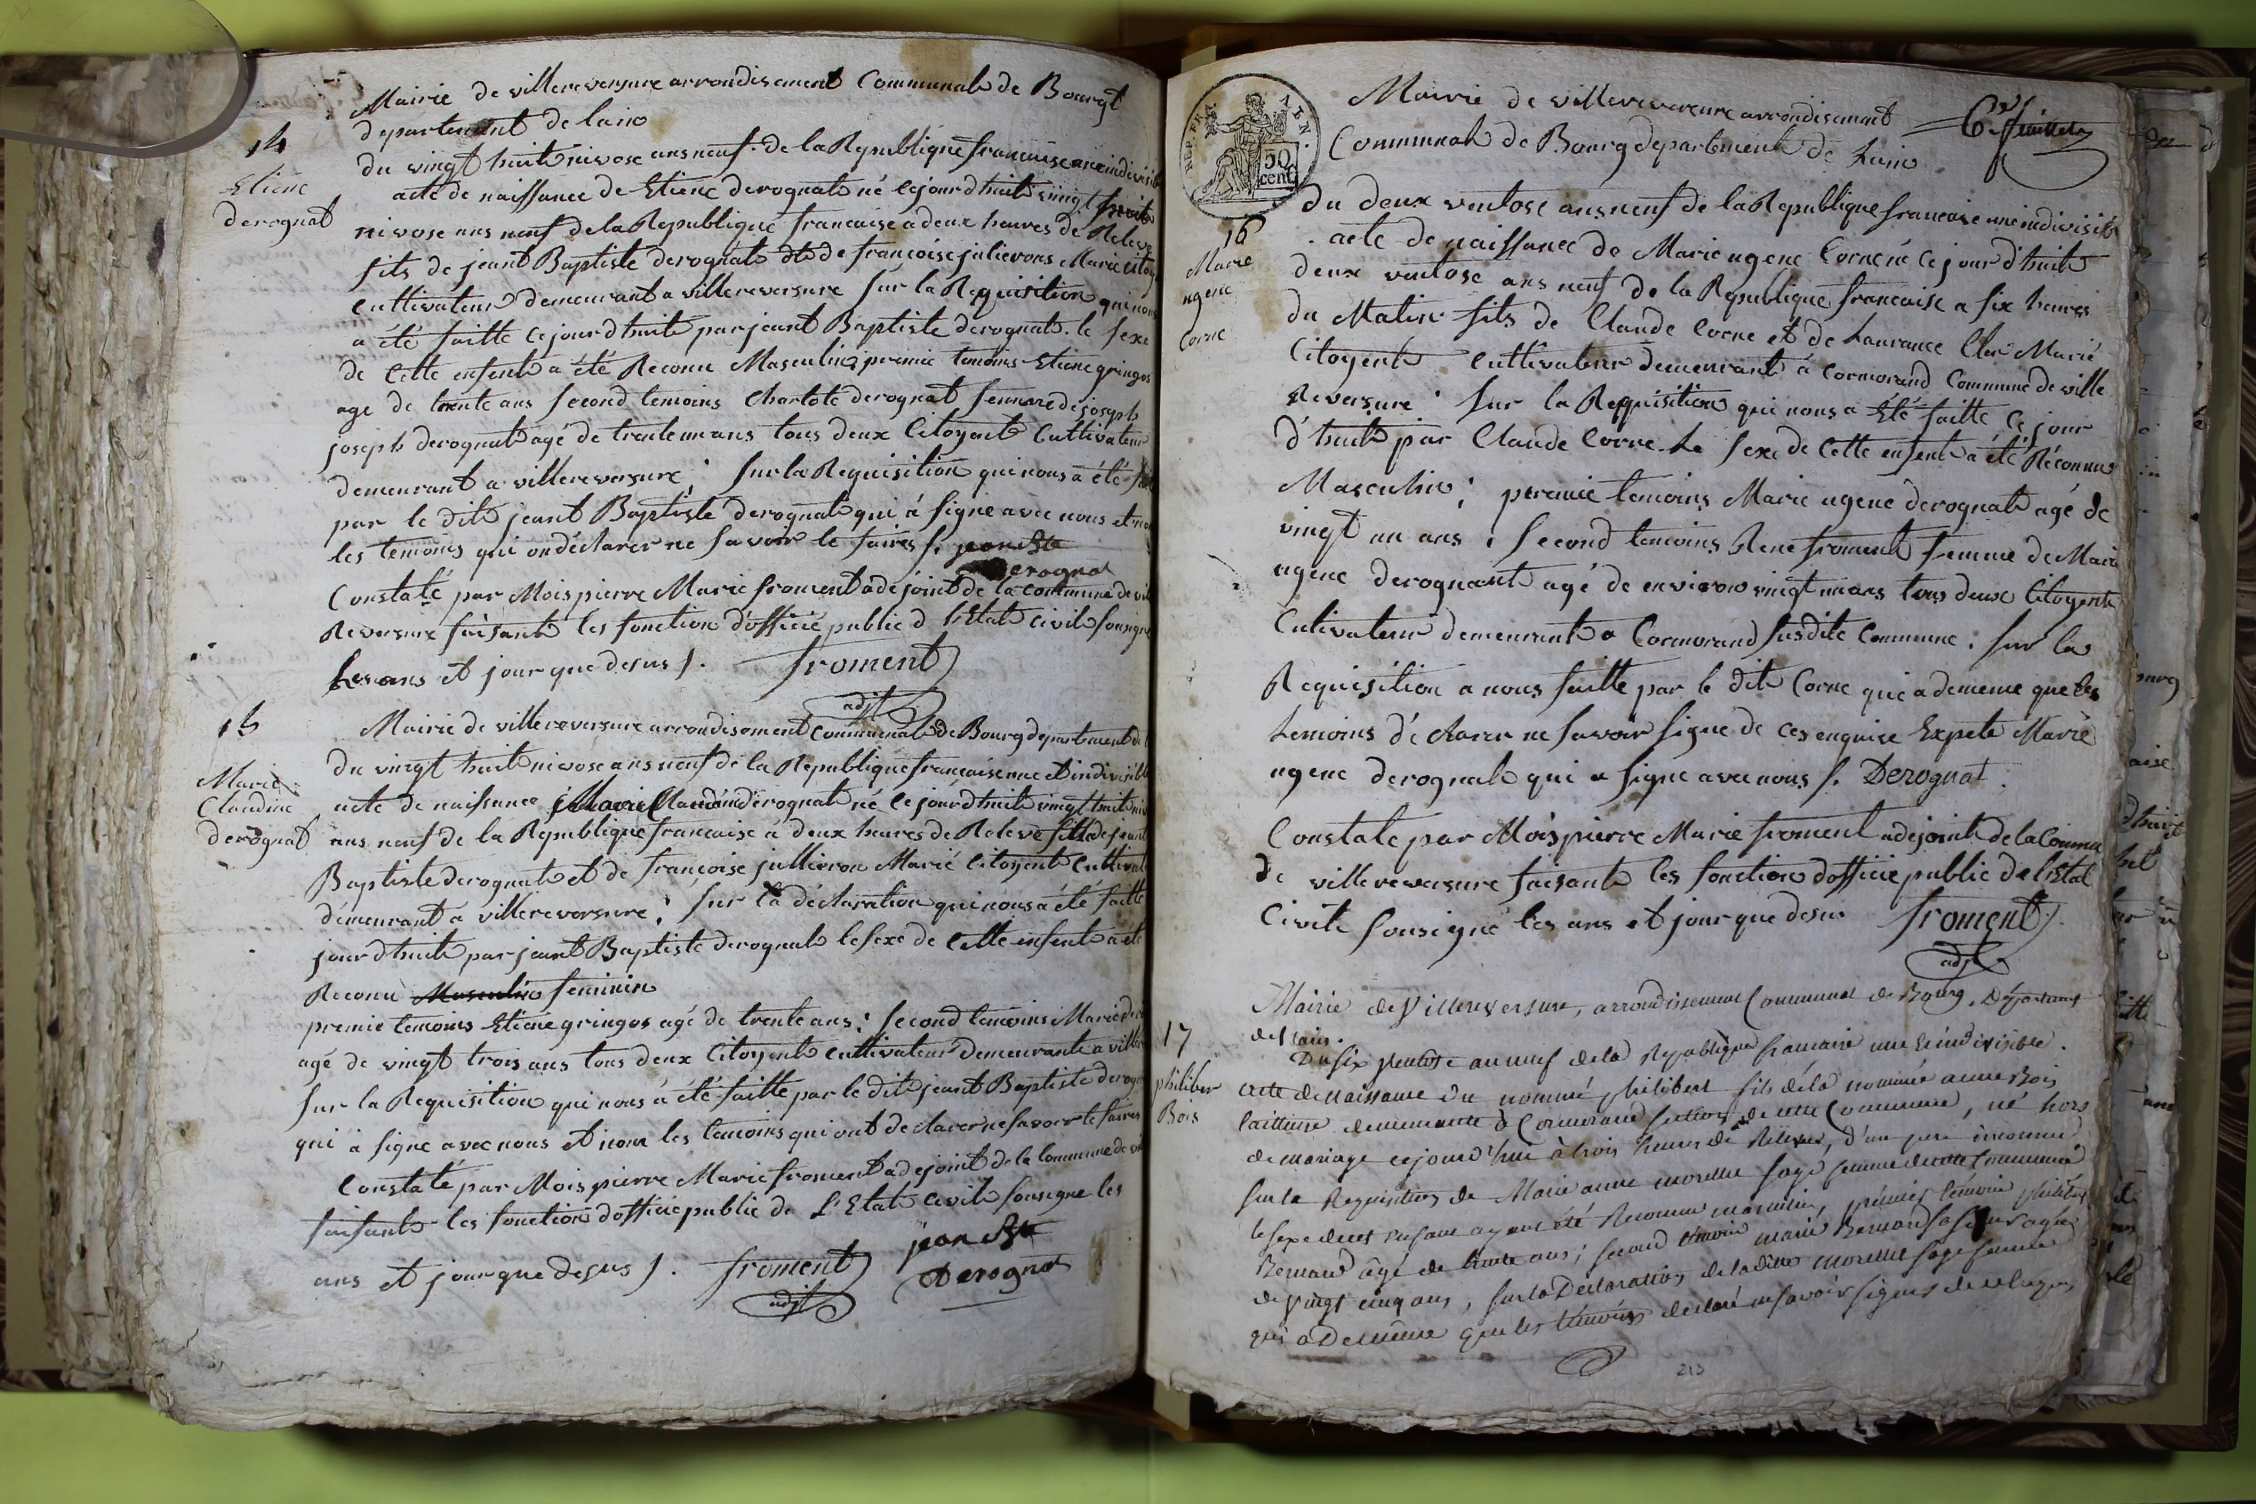 Mairie de villereversure arrondisement Communale de Bourgt
departement de lain
14
Etiene
derognat
du vingt huit nivose ans neuf de la Republique francaise une indivisib
acte de naissance de Etiene derognat né cejour d'huit vingt huit
nivose ans neuf de la Republique francaise a deux heures de Releve
fils de jeant Baptiste derognat et de françoise julievons Marié Citoy
Cultivateur demeurant a villereversure sur la Requisition qui nous
a été faitte cejourdhuit par jeant Baptiste derognat. le sexe
de Cette enfent a été Reconu Masculin; premie temoins Etiene gringos
age de trente ans second temoins Charlote derognat femme de joseph
joseph derognat agé de trente un ans tous deux Citoyent Cultivateur
demeurant a villereversure; sur la Requisition qui nous a été
par le dit jeant Baptiste derognat qui à signe avec nous et non
les temoins qui on déclarer ne savoir le faires /. jean Bte
Derognat
Constaté par Mois pierre Marie froment adejoint de la commune de vil
Reversure faisant les fonction d'officié public d l'Etat Civil sousigne
les ans et jour que desus /. froment
adjt
15
Marie
Claudine
derognat
Mairie de villereversure arrondisement Communale de Bourg departement de
du vingt huit nivose ans neuf de la Republique francaise une et indivisible
acte de naissance Marie Claudine derognat né cejourdhuit vingt huit
ans neuf de la Republique francaise à deux heures de Relevé fille de jeant
Baptiste derognat et de françoise jullieron Marié Citoyent Cultivat
demeurant a villereversure; sur la déclaration qui nous a été faitte
jourdhuit par jeant Baptiste derognat le sexe de Cette enfent a été
Reconu Masculin feminin
premie temoins Etiene gringos agé de trente ans; second temoins Marie
agé de vingt trois ans tous deux Citoyent cultivateur demeurante a viller
sur la Requisition qui nous a été faitte par le dit jeant Baptiste derogn
qui à signe avec nous et nom les temoins qui ont declarer ne savoir le faires
Constaté par Mois pierre Marie froment adejoint de la Commune de vil
faisant les fonction d'officié public de L'Etat Civil sousigne les
ans et jour que desus /. froment jean Bte
adjt Derognat
REP. FRA. ATEN.
50
cent.
Mairie de villereversure arrondisement
6e. feuillet
Communale de Bourg departement de Lain
16
Marie
ugene
Corne
Du deux ventose ans neuf de la Republique francaise une indivisib
acte de naissance de Marie ugene Corne né cejour d'huit
deux ventose ans neuf de la Republique francaise a six heures
du Matin fils de Claude Corne et de Laurance Clere Marié
Citoyent Cultivateur demeurant à Cormorand Commune de ville
Reversure; sur la Requisition qui nous a Eté faitte ce jour
d'huit par Claude Corne. Le sexe de Cette enfent a été Réconnu
Masculin; premie temoins Marie ugene derognat agé de
vingt un ans; second temoins Rene froment femme de Marie
ugene derognant agé de environ vingt un ans tous deux Citoyent
Cutivateur demeurant a Cormorand susdite Commune. sur la
Requisition a nous faitte par le dit Corne qui a dememe que les
temoins déclarer ne savoir signe de ces enquise Expete Marie
ugene derognat qui a signe avec nous /. Derognat
Constate par Mois pierre Marie froment adejoint de la Comme
de villereversure faisant les fonction d'officié public de l'Etat
Civil sousigné les ans et jour que desus froment
adjt
17
philiber
Bois
Mairie de Villereversure, arrondissement Communal de Bourg, Département
de l'ain.
Du six ventose an neuf de la République francaise une & indivisible.
acte de naissance du nommé philibert fils de la nommée anne Bois
taillieuse demeurante à Cormorand section de cette Commune, né hors
de mariage cejourd'hui à trois heures de Relevée, d'un pere inconnu,
sur la Requisition de Marie anne morelle sage femme de cette Commune
le sexe de cet enfant ayant été Reconnu masculin, prémier temoin philib
Bernard âgé de trente ans; second témoin marie Bernard sa soeur agée
de vingt cinq ans, sur la Declaration de la ditte morelle sage femme
qui a De même que les témoins déclaré ne savoir signer de ce Requis
213